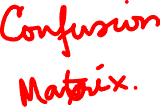 Confusion
Matrix.